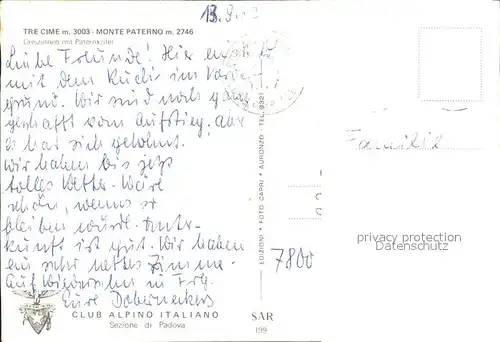 13.9.
TRE CIME m. 3003 - MONTE PATERNO m. 2746
Dreizinnen mit Paternkofel
Liebe Freunde! Hier
mit dem Rücken im Vorder-
grund. Wir sind noch ganz
geschafft vom Aufstieg, aber
es hat sich gelohnt.
Wir haben bis jetzt
tolles Wetter. Wäre
schön, wenns so
bleiben würde. Unter-
kunft ist gut. Wir haben
ein sehr nettes Zimmer.
Auf Wiedersehn in Frbg.
Eure
CLUB ALPINO ITALIANO
Sezione di Padova
EDIZIONI • FOTO CAPRI • AURONZO • TEL. 9381
SAR
199
Familie
7800
privacy protection
DSGVO/GDPR